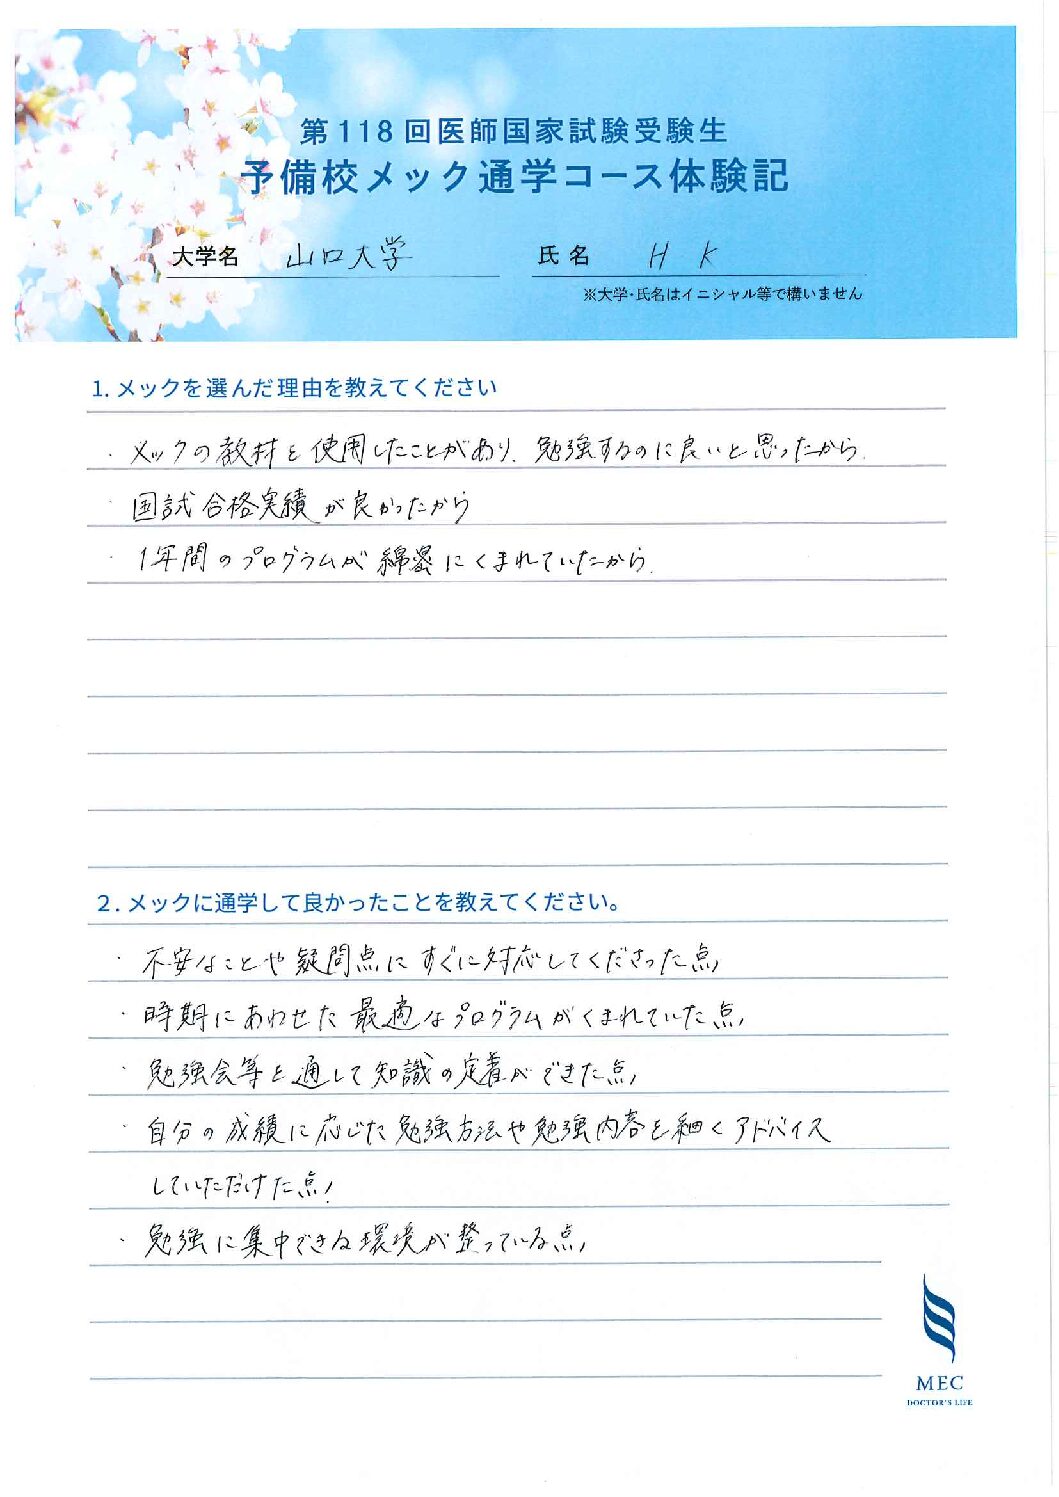 第118回医師国家試験受験生
予備校メック通学コース体験記
大学名 山口大学 氏名 H K
※大学・氏名はイニシャル等で構いません
1. メックを選んだ理由を教えてください
・メックの教材を使用したことがあり、勉強するのに良いと思ったから.
・国試合格実績が良かったから
・1年間のプログラムが綿密にくまれていたから.
2. メックに通学して良かったことを教えてください。
・不安なことや疑問点にすぐに対応してくださった点,
・時期にあわせた最適なプログラムがくまれていた点,
・勉強会等を通して知識の定着ができた点,
・自分の成績に応じた勉強方法や勉強内容を細くアドバイス
していただけた点,
・勉強に集中できる環境が整っている点,
MEC
DOCTOR'S LIFE